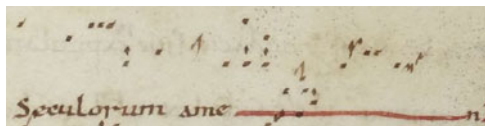 Seculorum ame n